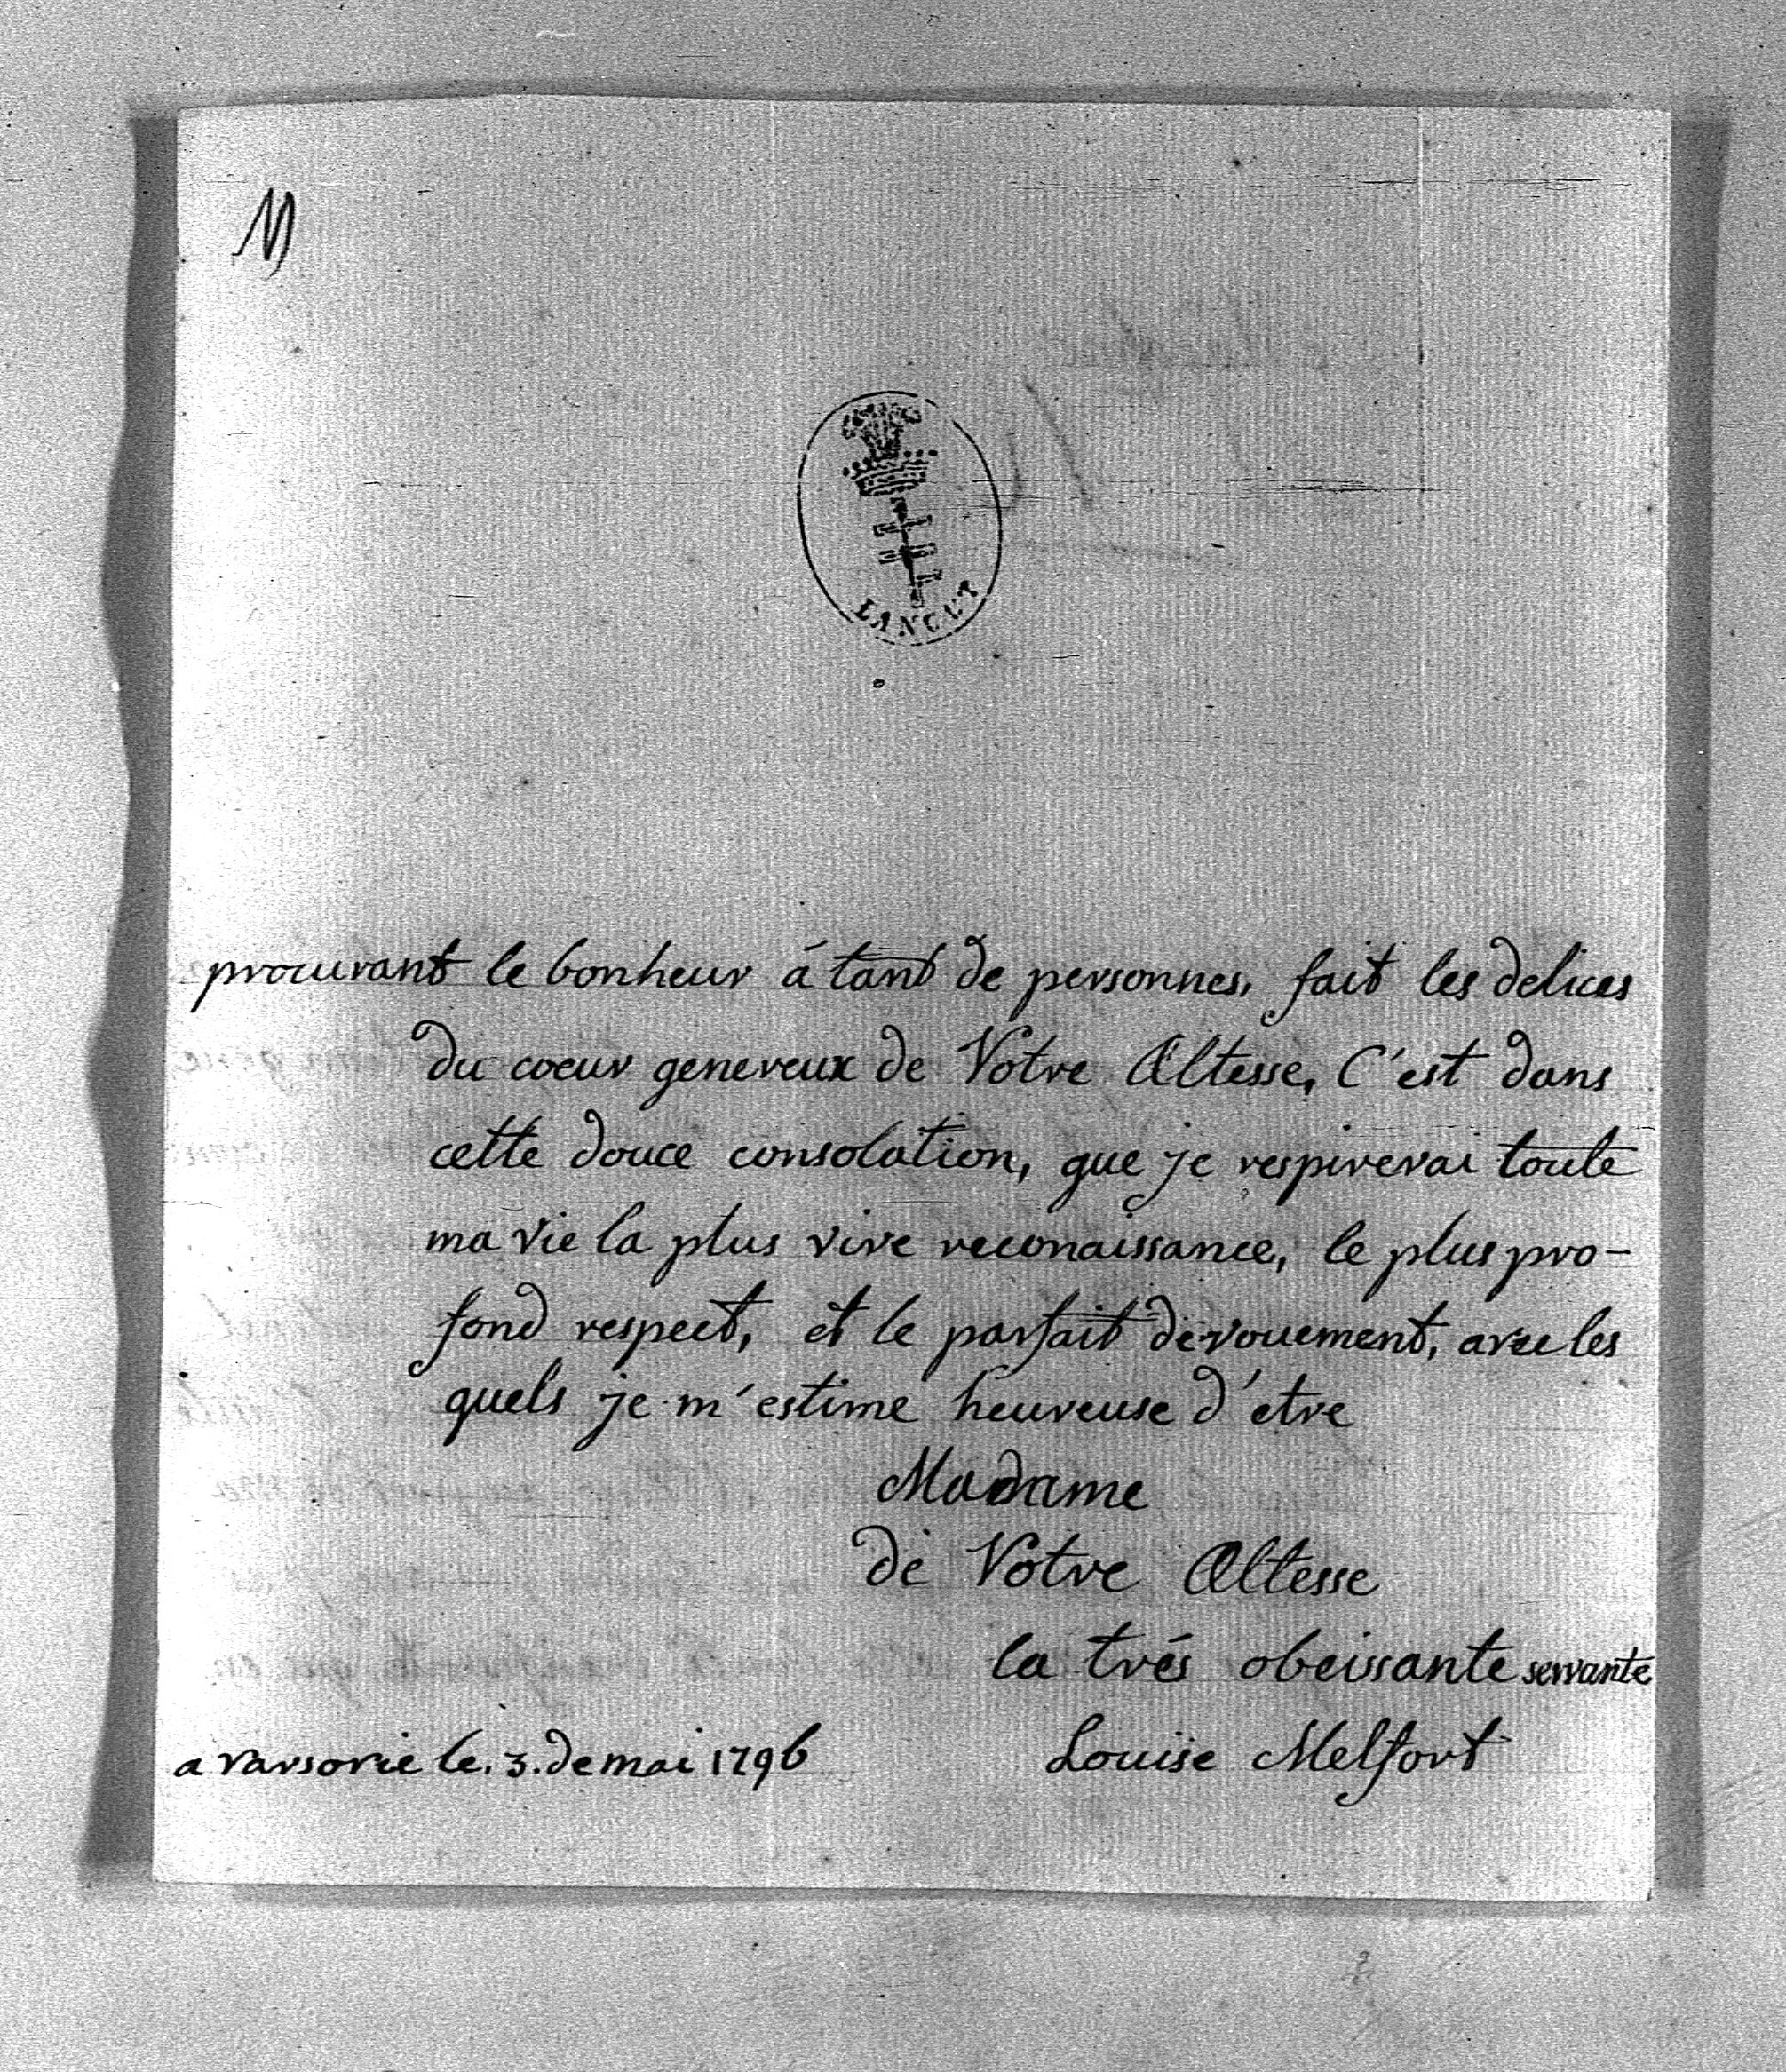 LANCUT
procurant le bonheur á tant de personnes, fait les delices
du coeur genereux de Votre Altesse, C'est dans
cette douce consolation, que je respirerai toute
ma vie la plus vive reconaissance, le plus pro-
fond respect, et le parfait dévouement, avec les
quels je m'estime heureuse d'etre
Madame
de Votre Altesse
la trés obeissante servante
Louise Melfort
a varsovie le. 3. de mai 1796